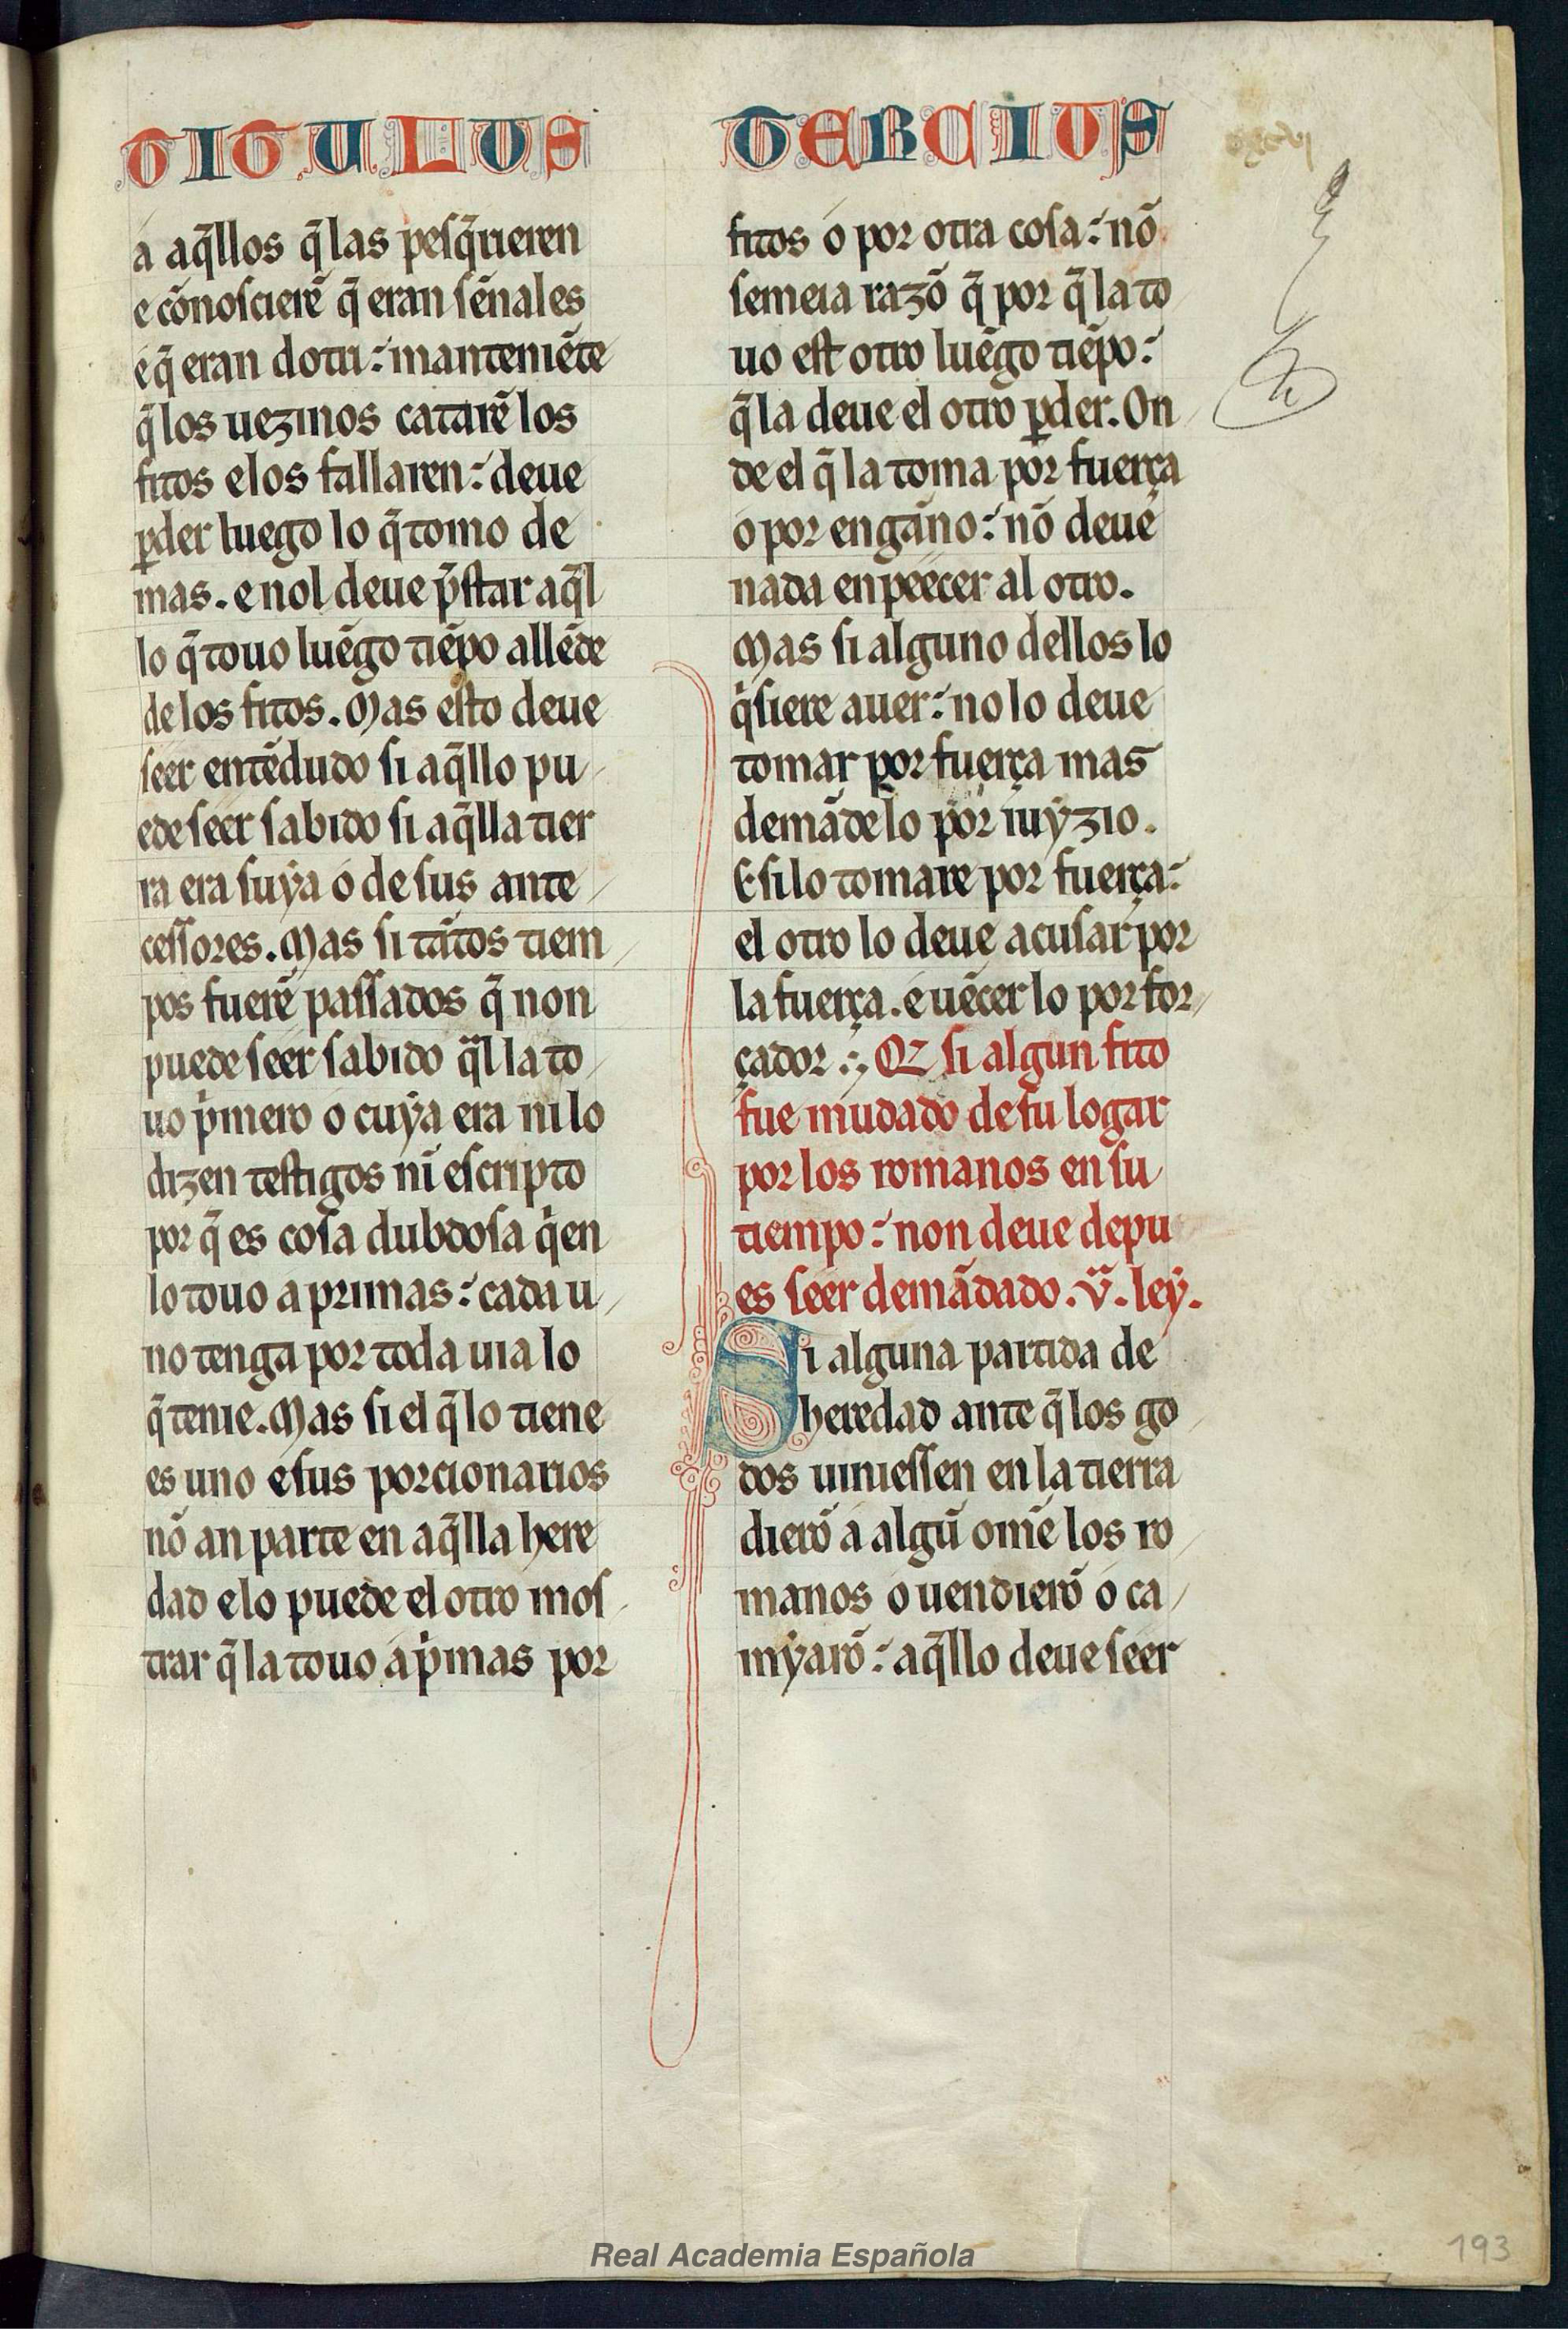 TITULUS
TERCIUS
a aq̃llos q̃ las pesq̃rieren
e cõnoscierẽ q̃ eran sẽnales
e q̃ eran dotri: manteniẽte
q̃ los uezinos catarẽ los
fitos e los fallaren: deue
ꝑder luego lo q̃ tomo de
mas. e nol deue p̃star aq̃l
lo q̃ touo luẽgo tiẽpo allẽde
de los fitos. Mas esto deue
seer entẽdudo si aq̃llo pu
ede seer sabido si aq̃lla tier
ra era suẏa o de sus ante
cessores. Mas si tãtos tiem
pos fuerẽ passados q̃ non
puede seer sabido q̃l la to
uo p̃mero o cuẏa era ni lo
dizen testigos nĩ escripto
por q̃ es cosa dubdosa q̃en
lo touo a primas: cada u
no tenga por toda uia lo
q̃ tenie. Mas si el q̃ lo tiene
es uno e sus porcionarios
nõ an parte en aq̃lla here
dad e lo puede el otro mos
trar q̃ la touo a p̃mas por
fitos o por otra cosa: nõ
semeia razõ q̃ por q̃ la to
uo est otro luẽgo tiẽpo:
q̃ la deue el otro ꝑder. On
de el q̃ la toma por fuerça
o por engãno: nõ deue
nada enpeecer al otro.
Mas si alguno dellos lo
q̃siere auer: no lo deue
tomar por fuerça mas
demãdelo por iuẏzio.
E si lo tomare por fuerça:
el otro lo deue acusar por
la fuerça. e uẽcer lo por for
çador. QZ si algun fito
fue mudado de su logar
por los romanos en su
tiempo: non deue depu
es seer demãdado. v̈. leẏ.
Si alguna partida de
heredad ante q̃ los go
dos uiniessen en la tierra
dierõ a algũ omẽ los ro
manos o uendierõ o ca
mẏarõ: aq̃llo deue seer
Real Academia Española
193